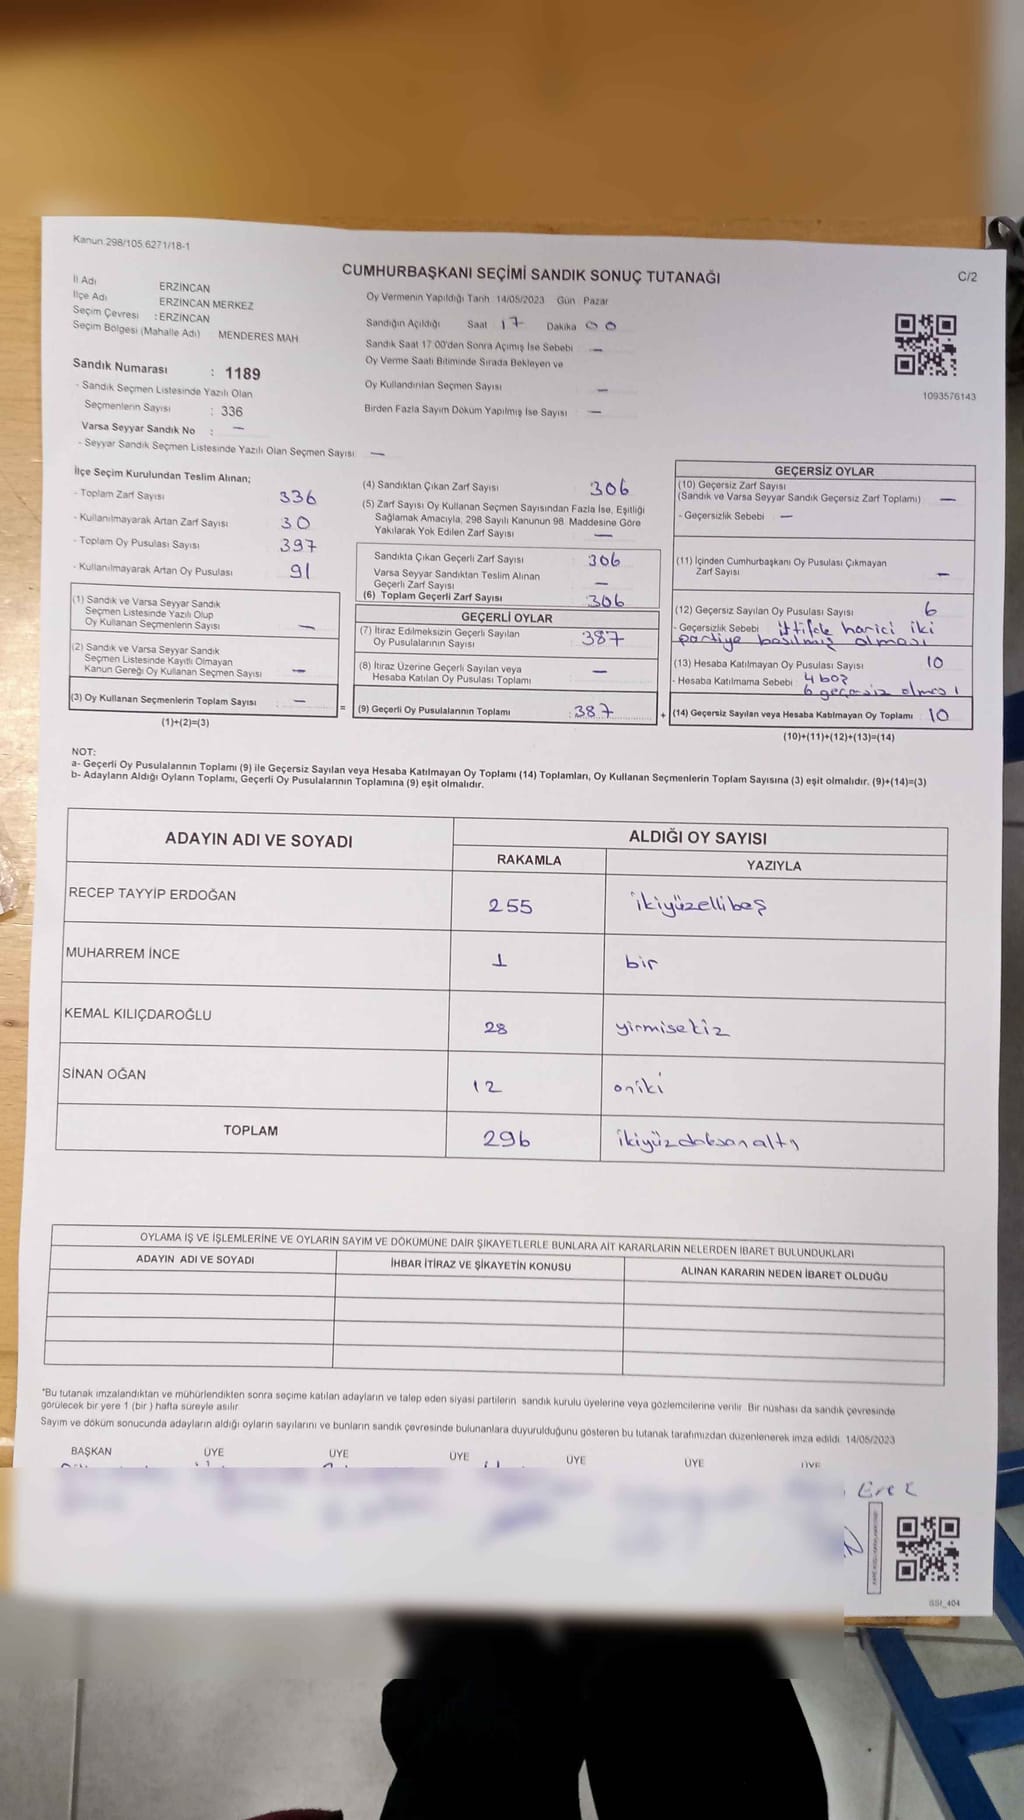 Kanun:298/105.6271/18-1
CUMHURBAŞKANI SEÇİMİ SANDIK SONUÇ TUTANAĞI
C/2
İl Adı ERZİNCAN
İlçe Adı ERZİNCAN MERKEZ
Seçim Çevresi : ERZİNCAN
Seçim Bölgesi (Mahalle Adı) MENDERES MAH
Sandık Numarası : 1189
- Sandık Seçmen Listesinde Yazılı Olan
Seçmenlerin Sayısı : 336
Varsa Seyyar Sandık No : —
- Seyyar Sandık Seçmen Listesinde Yazılı Olan Seçmen Sayısı —
Oy Vermenin Yapıldığı Tarih 14/05/2023 Gün Pazar
Sandığın Açıldığı Saat 17 Dakika 00
Sandık Saat 17:00'den Sonra Açımış İse Sebebi —
Oy Verme Saati Bitiminde Sırada Bekleyen ve
Oy Kullandırılan Seçmen Sayısı —
Birden Fazla Sayım Döküm Yapılmış İse Sayısı —
1093576143
İlçe Seçim Kurulundan Teslim Alınan;
- Toplam Zarf Sayısı 336
- Kullanılmayarak Artan Zarf Sayısı 30
- Toplam Oy Pusulası Sayısı 397
- Kullanılmayarak Artan Oy Pusulası 91
(1) Sandık ve Varsa Seyyar Sandık
Seçmen Listesinde Yazılı Olup
Oy Kullanan Seçmenlerin Sayısı —
(2) Sandık ve Varsa Seyyar Sandık
Seçmen Listesinde Kayıtlı Olmayan
Kanun Gereği Oy Kullanan Seçmen Sayısı —
(3) Oy Kullanan Seçmenlerin Toplam Sayısı —
(1)+(2)=(3)
=
(4) Sandıktan Çıkan Zarf Sayısı 306
(5) Zarf Sayısı Oy Kullanan Seçmen Sayısından Fazla İse, Eşitliği
Sağlamak Amacıyla, 298 Sayılı Kanunun 98. Maddesine Göre
Yakılarak Yok Edilen Zarf Sayısı —
Sandıkta Çıkan Geçerli Zarf Sayısı 306
Varsa Seyyar Sandıktan Teslim Alınan
Geçerli Zarf Sayısı —
(6) Toplam Geçerli Zarf Sayısı 306
GEÇERLİ OYLAR
(7) İtiraz Edilmeksizin Geçerli Sayılan
Oy Pusulalarının Sayısı 387
(8) İtiraz Üzerine Geçerli Sayılan veya
Hesaba Katılan Oy Pusulası Toplamı —
(9) Geçerli Oy Pusulalarının Toplamı : 387
+
GEÇERSİZ OYLAR
(10) Geçersiz Zarf Sayısı
(Sandık ve Varsa Seyyar Sandık Geçersiz Zarf Toplamı) —
- Geçersizlik Sebebi —
(11) İçinden Cumhurbaşkanı Oy Pusulası Çıkmayan
Zarf Sayısı —
(12) Geçersiz Sayılan Oy Pusulası Sayısı 6
- Geçersizlik Sebebi ittifak harici iki
partiye basılmış olması
(13) Hesaba Katılmayan Oy Pusulası Sayısı 10
- Hesaba Katılmama Sebebi 4 boş
6 geçersiz olması
(14) Geçersiz Sayılan veya Hesaba Katılmayan Oy Toplamı 10
(10)+(11)+(12)+(13)=(14)
NOT:
a- Geçerli Oy Pusulalarının Toplamı (9) ile Geçersiz Sayılan veya Hesaba Katılmayan Oy Toplamı (14) Toplamları, Oy Kullanan Seçmenlerin Toplam Sayısına (3) eşit olmalıdır. (9)+(14)=(3)
b- Adayların Aldığı Oyların Toplamı, Geçerli Oy Pusulalarının Toplamına (9) eşit olmalıdır.
ADAYIN ADI VE SOYADI
ALDIĞI OY SAYISI
RAKAMLA YAZIYLA
RECEP TAYYİP ERDOĞAN 255 ikiyüzellibeş
MUHARREM İNCE 1 bir
KEMAL KILIÇDAROĞLU 28 yirmisekiz
SİNAN OĞAN 12 oniki
TOPLAM 296 ikiyüzdoksanaltı
OYLAMA İŞ VE İŞLEMLERİNE VE OYLARIN SAYIM VE DÖKÜMÜNE DAİR ŞİKAYETLERLE BUNLARA AİT KARARLARIN NELERDEN İBARET BULUNDUKLARI
ADAYIN ADI VE SOYADI İHBAR İTİRAZ VE ŞİKAYETİN KONUSU ALINAN KARARIN NEDEN İBARET OLDUĞU
*Bu tutanak imzalandıktan ve mühürlendikten sonra seçime katılan adayların ve talep eden siyasi partilerin sandık kurulu üyelerine veya gözlemcilerine verilir. Bir nüshası da sandık çevresinde
görülecek bir yere 1 (bir ) hafta süreyle asılır
Sayım ve döküm sonucunda adayların aldığı oyların sayılarını ve bunların sandık çevresinde bulunanlara duyurulduğunu gösteren bu tutanak tarafımızdan düzenlenerek imza edildi. 14/05/2023
BAŞKAN ÜYE ÜYE ÜYE ÜYE ÜYE ÜYE